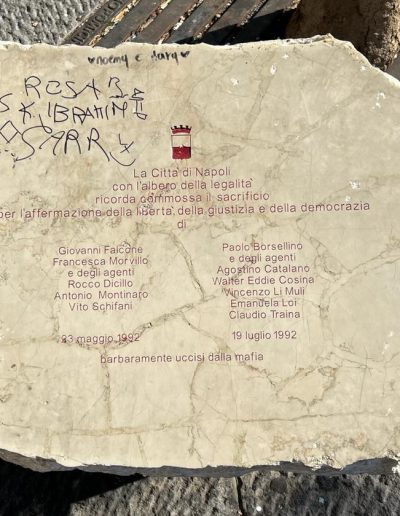 ♥noemy e dary♥
ROSA B
S K, IBRAHIM
SARR
La Città di Napoli
con l'albero della legalità
ricorda commossa il sacrificio
per l'affermazione della libertà della giustizia e della democrazia
di
Giovanni Falcone
Francesca Morvillo
e degli agenti
Rocco Dicillo
Antonio Montinaro
Vito Schifani
23 maggio 1992
Paolo Borsellino
e degli agenti
Agostino Catalano
Walter Eddie Cosina
Vincenzo Li Muli
Emanuela Loi
Claudio Traina
19 luglio 1992
barbaramente uccisi dalla mafia